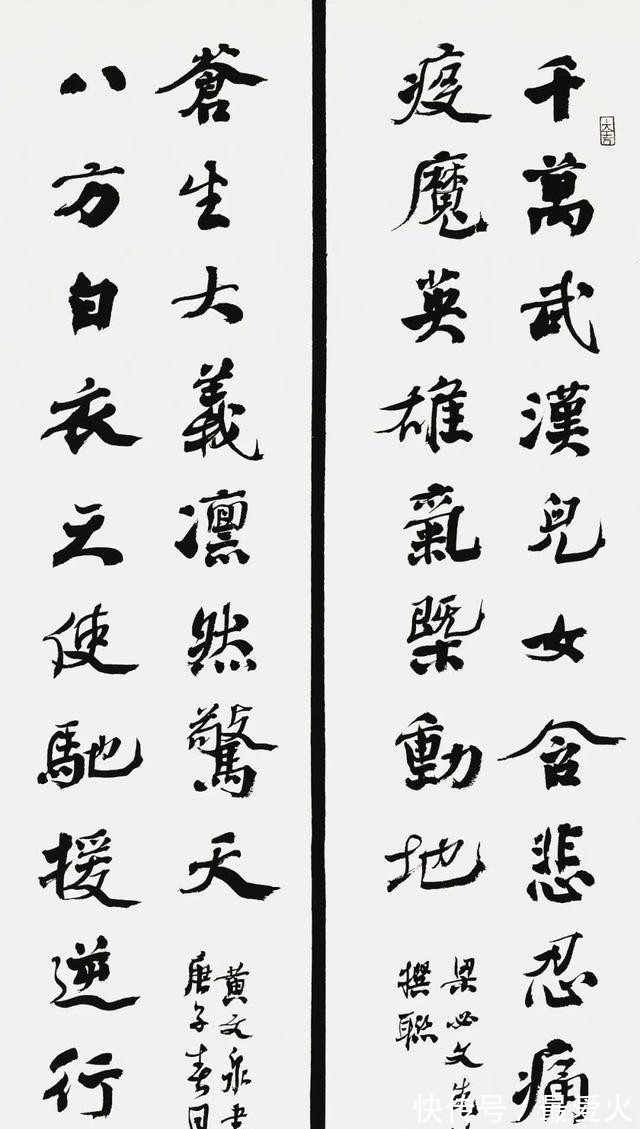 大吉
千萬武漢兒女含悲忍痛
疫魔英雄氣槩動地
梁必文先
撰聯
八方白衣天使馳援逆行
蒼生大義凛然驚天
庚子春日
黄文泉書
快传号/最爱火